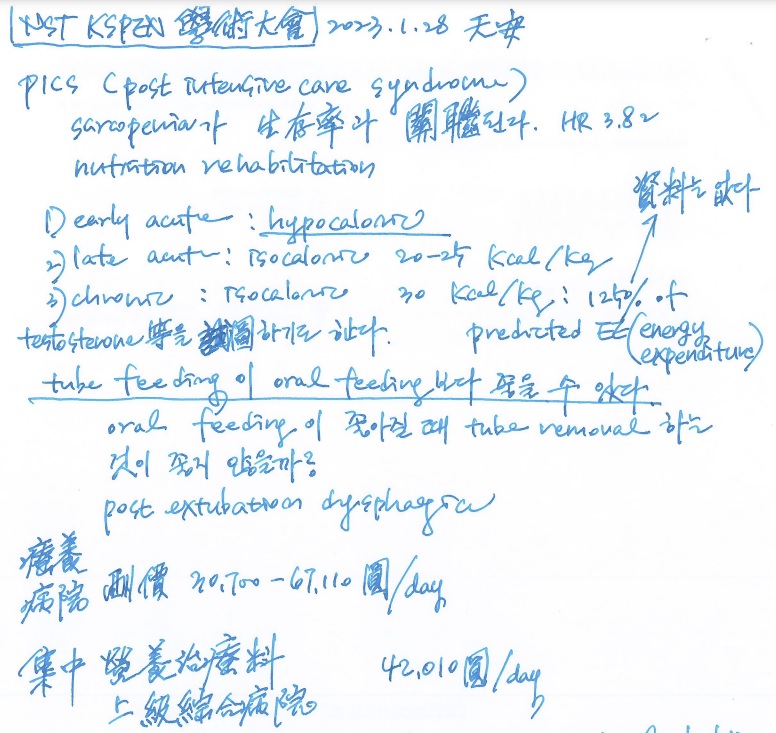 NST KSPEN 學術大會 2023.1.28 天安
PICS (post intensive care syndrome)
sarcopenia가 生存率과 關聯된다. HR 3.82
nutrition rehabilitation
資料는 없다
1) early acute : hypocaloric
2) late acute : isocaloric 20-25 Kcal/kg
3) chronic : isocaloric 30 Kcal/kg : 125% of
testosterone 等을 試圖하기도 한다. predicted EE (energy
expenditure)
tube feeding이 oral feeding보다 좋을 수 있다.
oral feeding이 좋아질 때 tube removal 하는
것이 좋지 않을까?
post extubation dysphagia
療養
病院 酬價 20,700-67,110 圓/day
集中 營養治療料 42,010圓/day
上級綜合病院